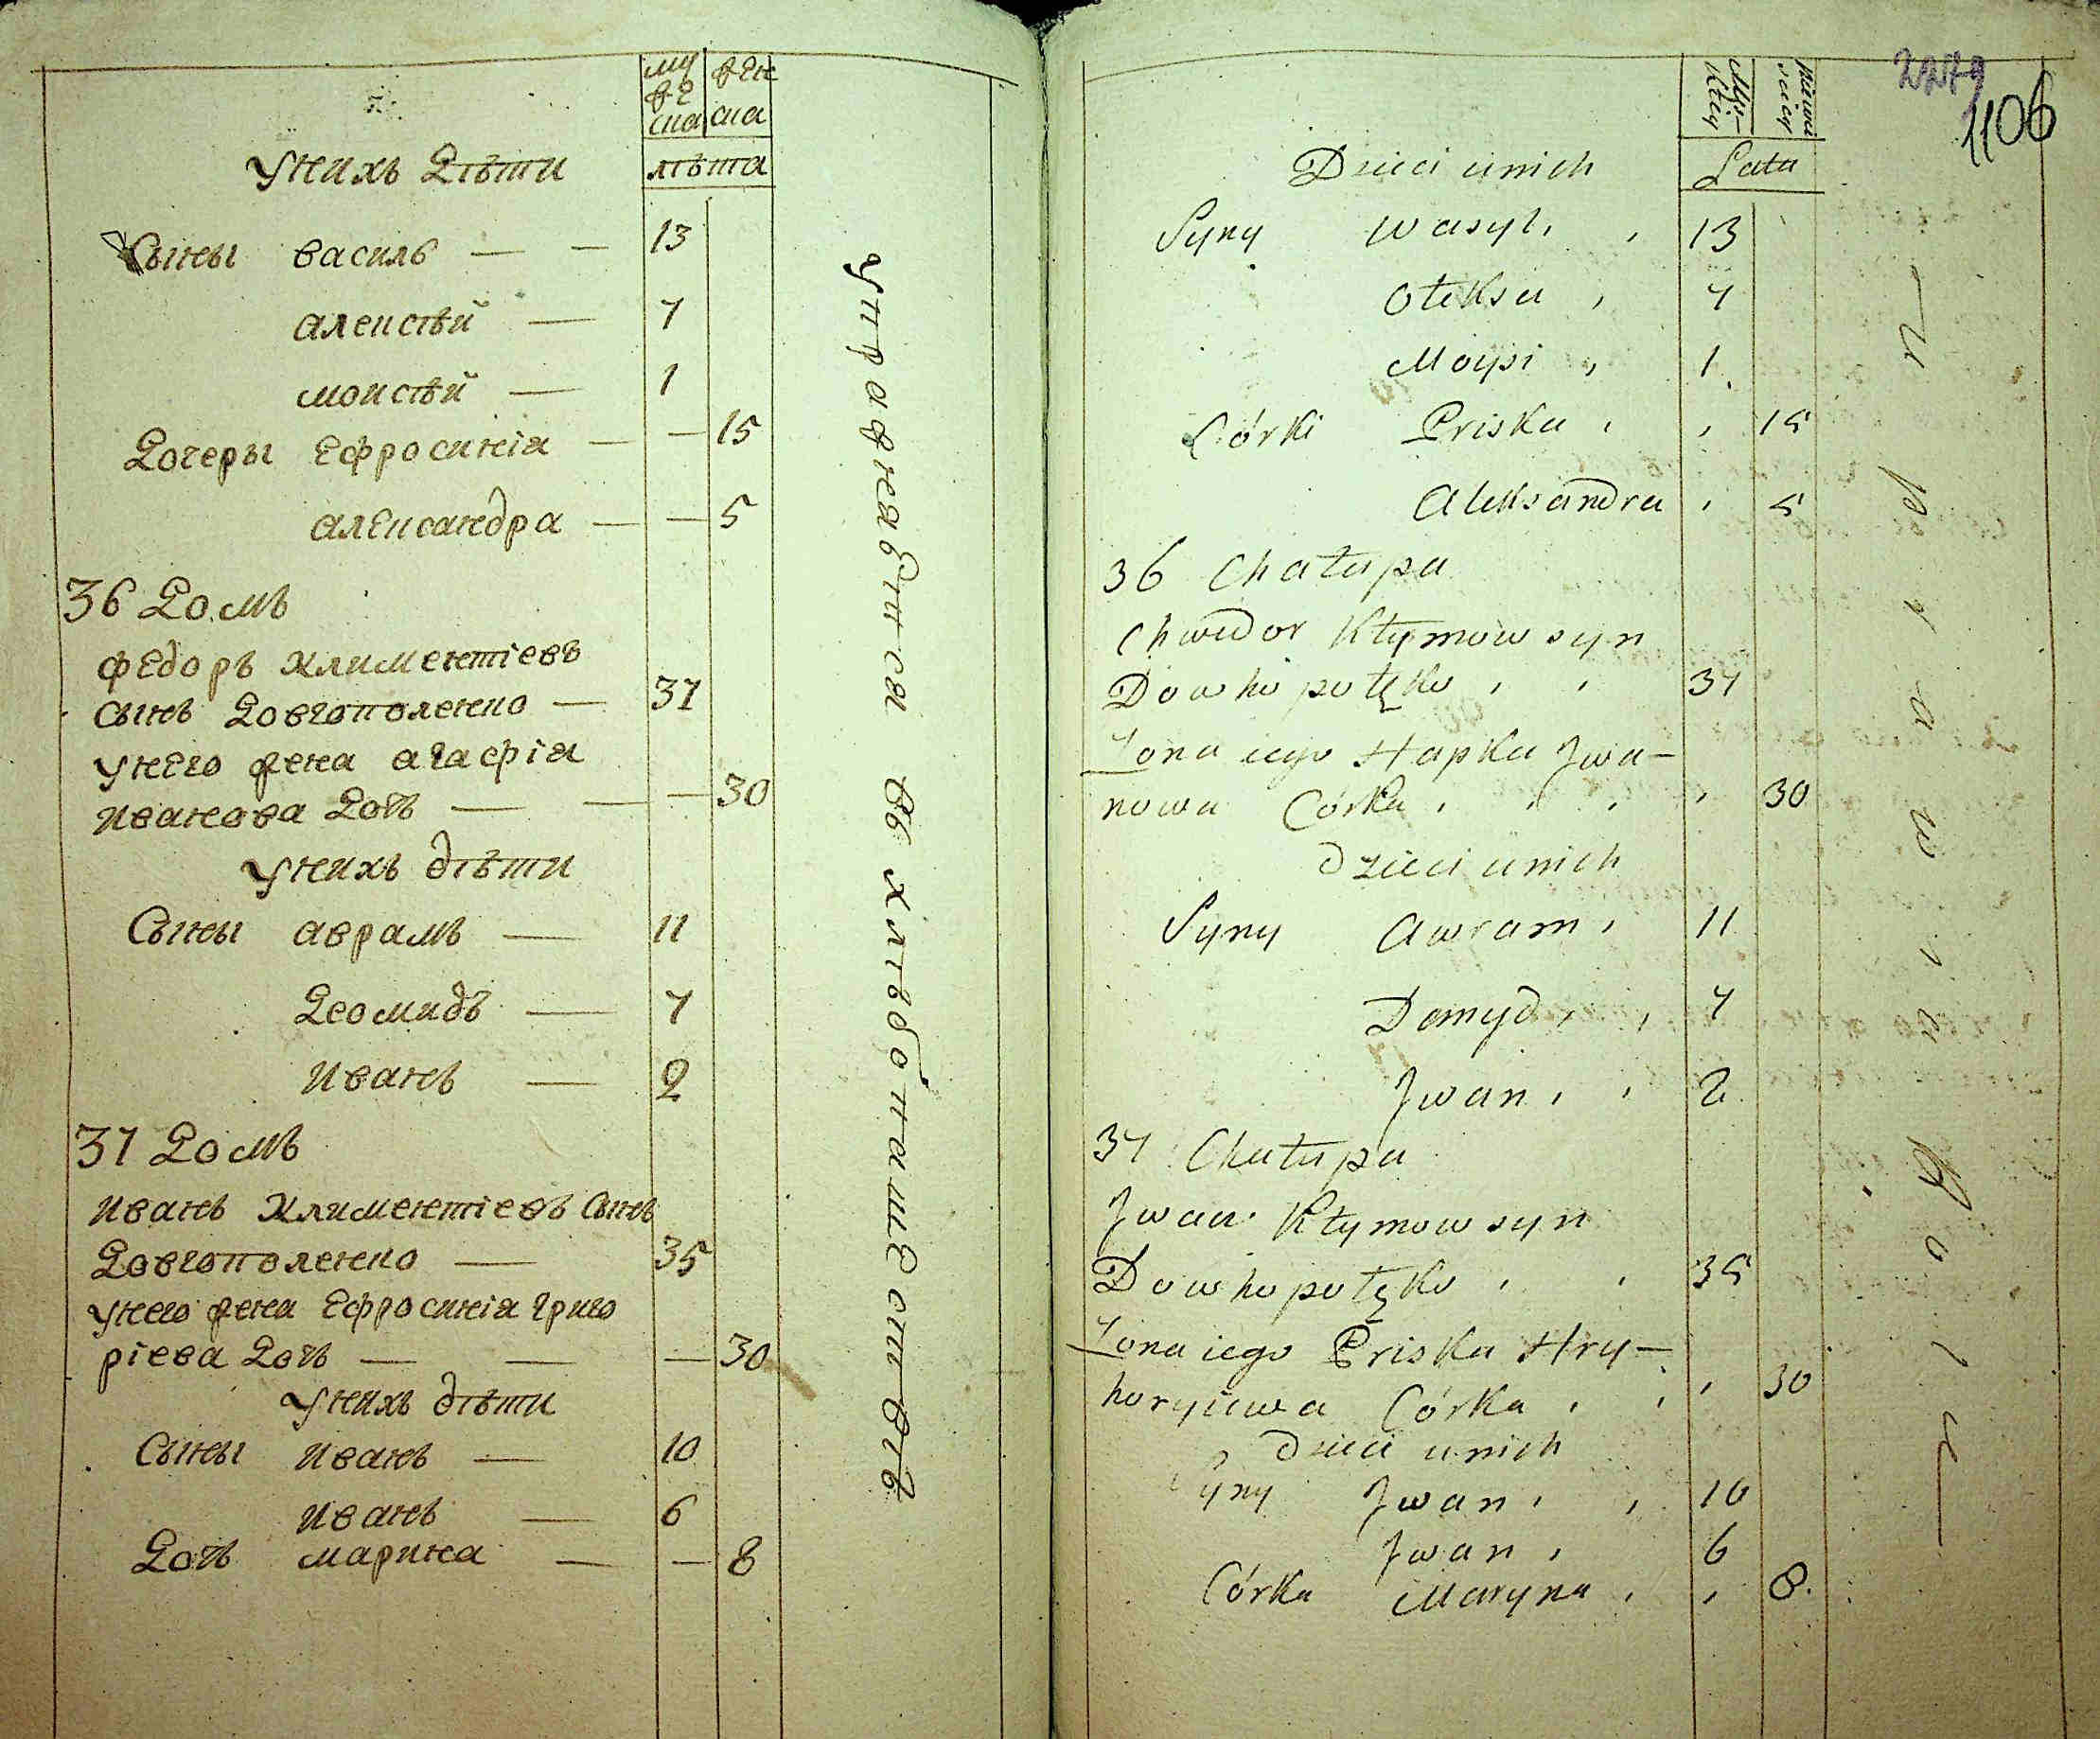 муже ска
жен ска
лѣта
у нихъ Дѣти
Сыны василь — — 13
алексѣй — 7
моисѣй — 1
Дочеры Ефросинія — — 15
александра — — 5
36 Домъ
федоръ климентіевъ
сынъ Довгополенко — 37
у него жена агафія
иванова Дочь — — — 30
у нихъ дѣти
Сыны аврамъ — 11
Деомидъ — 7
иванъ — 2
37 Домъ
иванъ климентіевъ сынъ
Довгополенко — 35
у него жена Ефросинія григо
ріева Дочь — — — 30
у нихъ дѣти
Сыны иванъ — 10
иванъ — 6
Дочь марина — — 8
упражняется въ хлѣбопашествѣ
2279
1106
Męz-
kiey
Lata
Dzieci u nich
Syny Wasyl , , 13
Ołeksa , 7
Moysi , 1
Córki Priska , , 15
Aleksandra , 5
36 Chałupa
Chwedor Kłymow syn
Dowhopołęko , , 37
Żona iego Hapka Jwa-
nowa Córka , , , , 30
dzieci u nich
Syny Awram , 11
Demyd , , 7
Jwan , , 2
37 Chałupa
Jwan Kłymow syn
Dowhopołęko , , 35
Żona iego Priska Hry-
horyiewa Córka , , , 30
dzieci u nich
Syny Jwan , , 10
Jwan , 6
Córka Maryna , , 8.